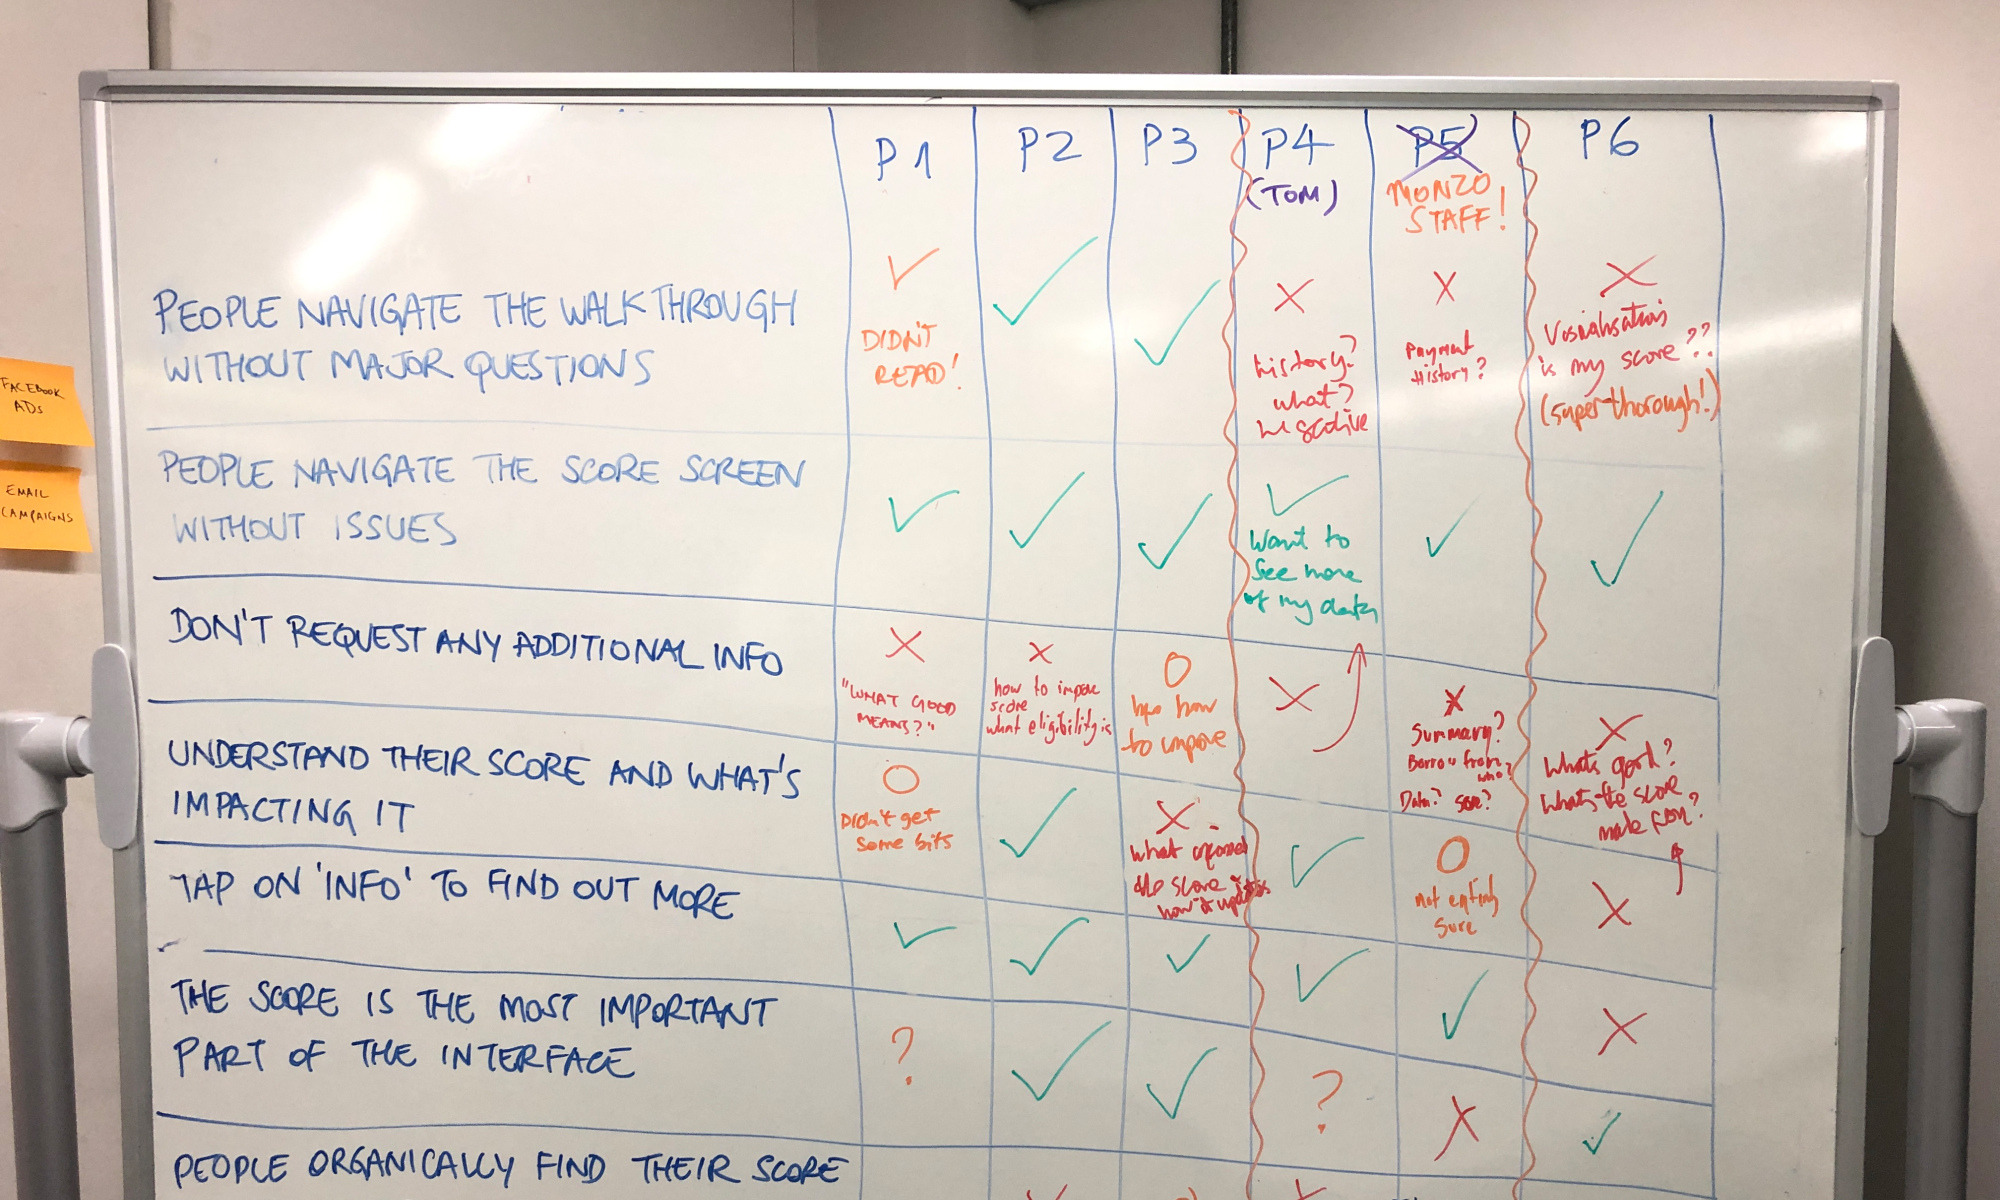 P1
P2
P3
P4
(TOM)
P5
MONZO
STAFF!
P6
PEOPLE NAVIGATE THE WALKTHROUGH
WITHOUT MAJOR QUESTIONS
DIDN'T
READ!
history?
what?
Payment
History?
is my score??
(super thorough!)
PEOPLE NAVIGATE THE SCORE SCREEN
WITHOUT ISSUES
Want to
See more
of my data
DON'T REQUEST ANY ADDITIONAL INFO
"WHAT GOOD
MEANS?"
how to improve
score
what eligibility is
how
to improve
Summary?
Borrow from
who?
Data? Score?
What's good?
What's the score
made from?
UNDERSTAND THEIR SCORE AND WHAT'S
IMPACTING IT
Didn't get
some bits
what
the score
how it updates
not entirely
sure
TAP ON 'INFO' TO FIND OUT MORE
THE SCORE IS THE MOST IMPORTANT
PART OF THE INTERFACE
?
?
PEOPLE ORGANICALLY FIND THEIR SCORE
FACEBOOK
ADs
EMAIL
CAMPAIGNS